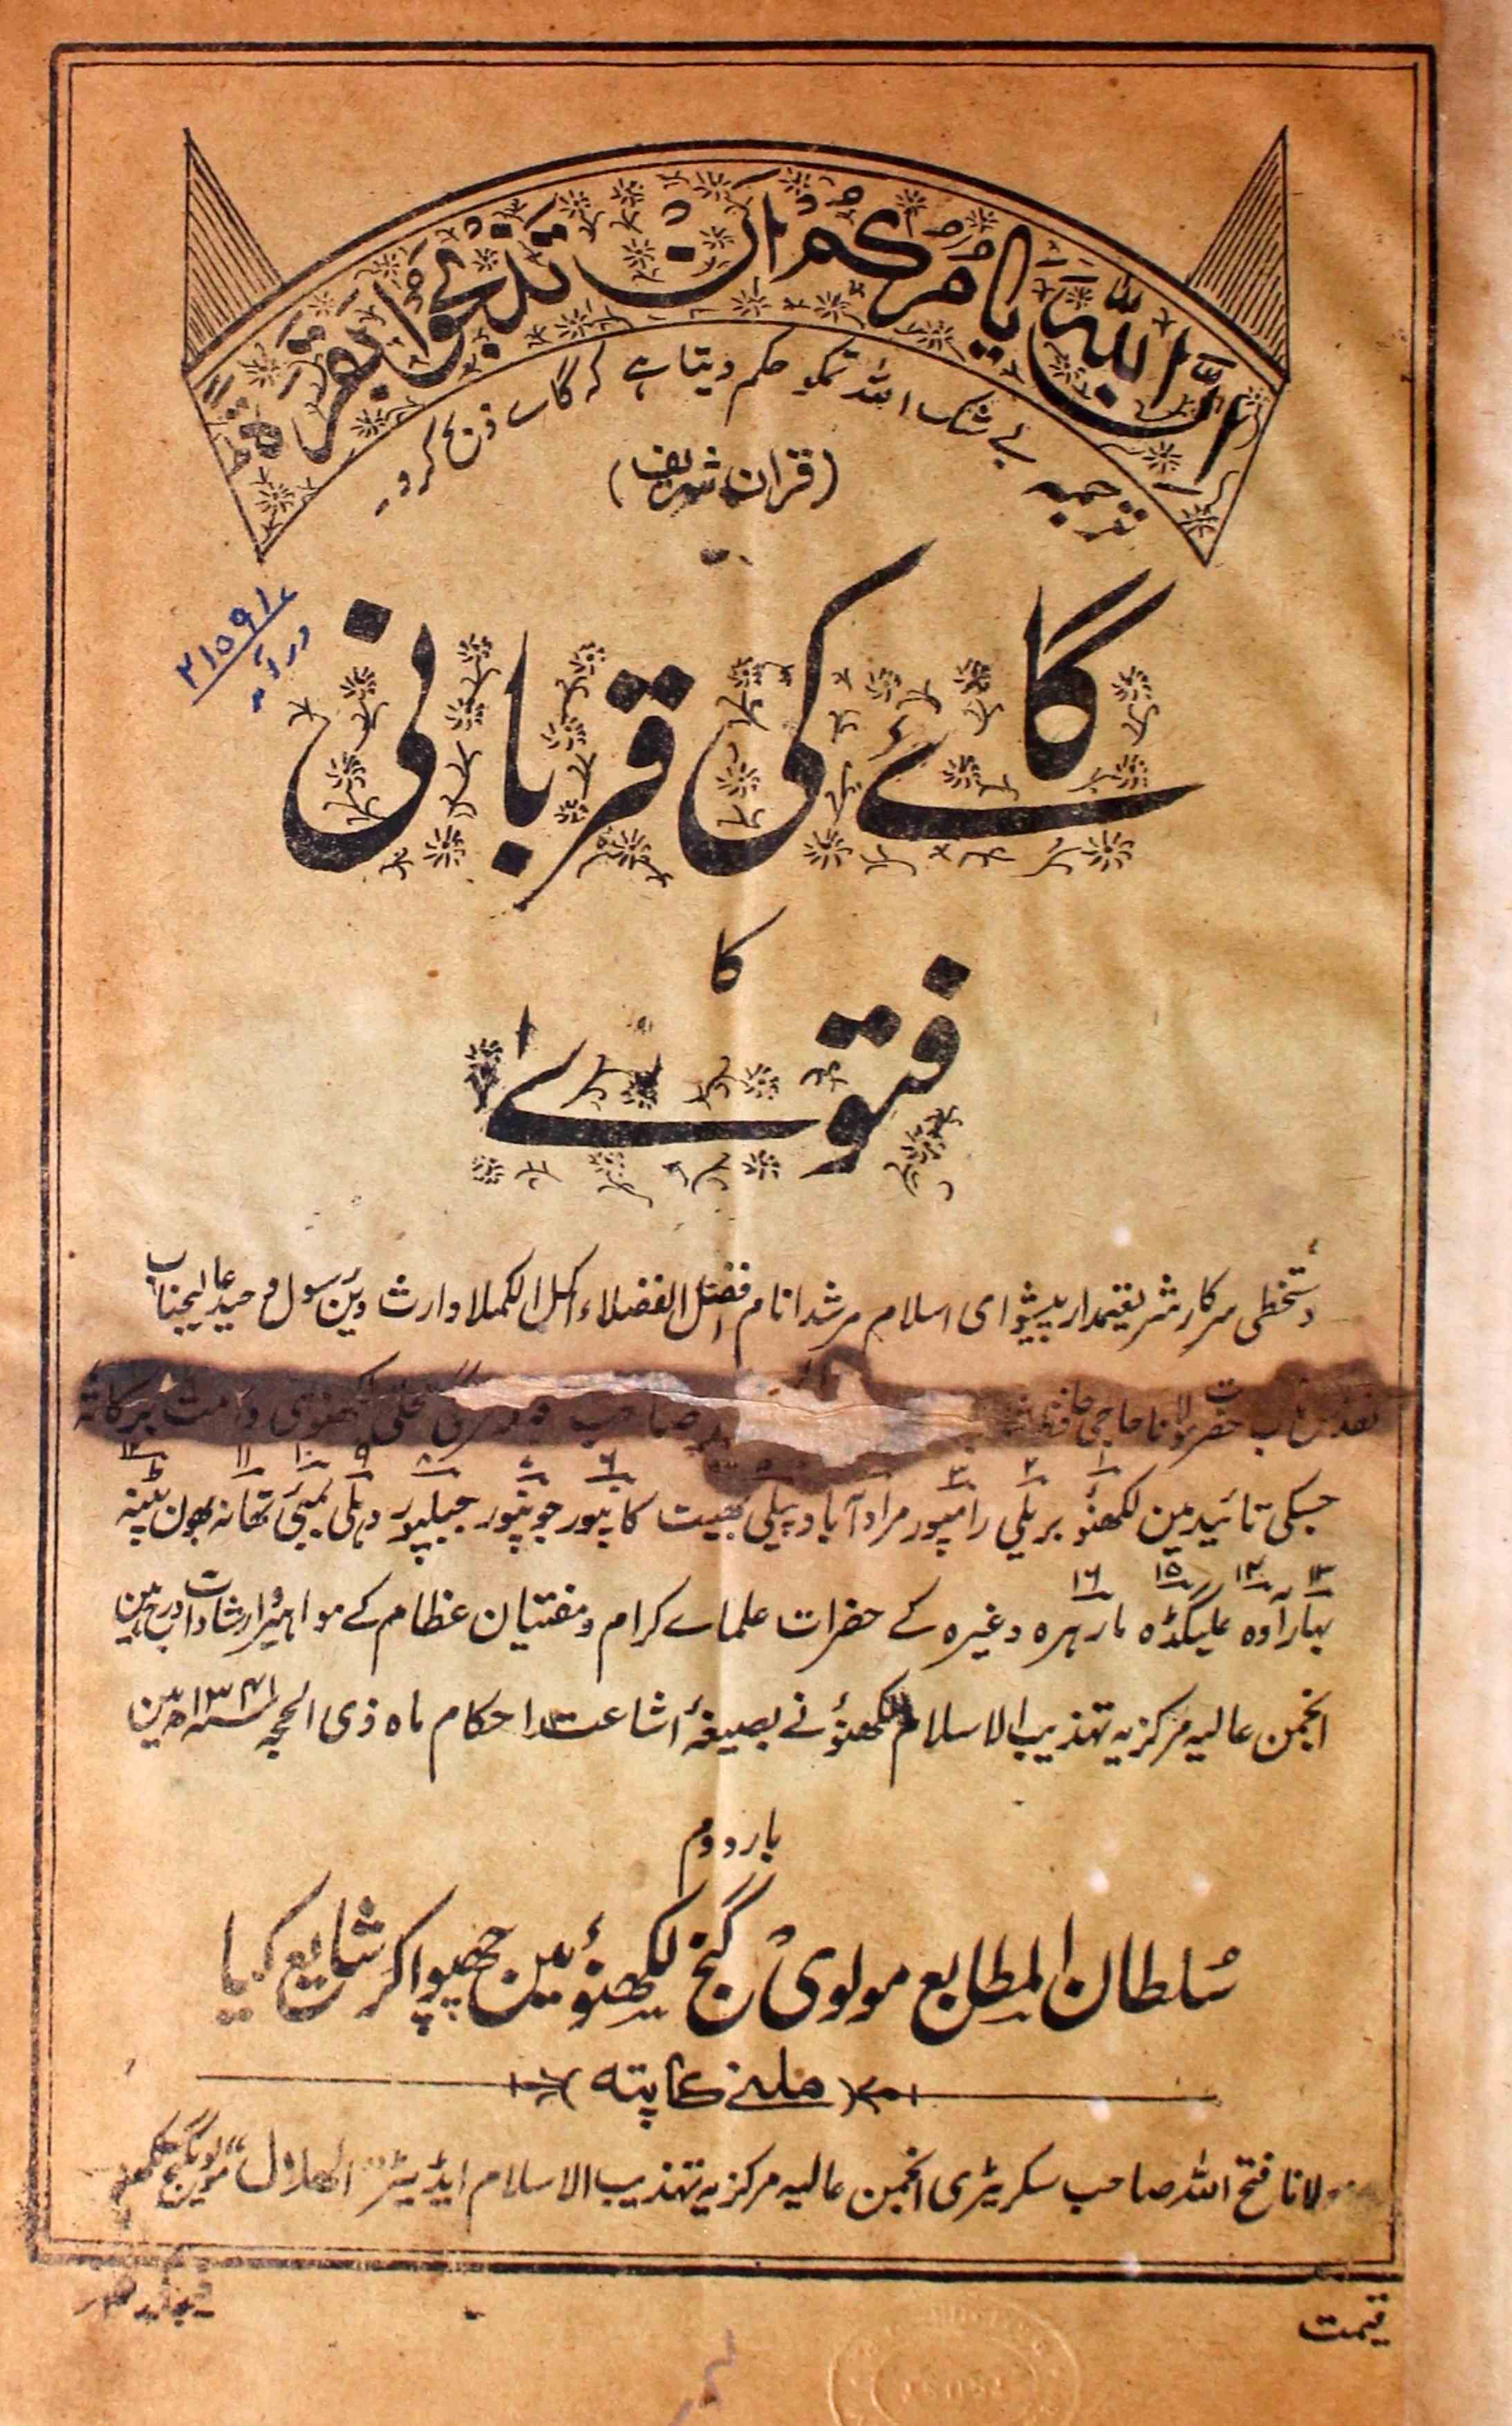 اِنَّ اللّٰہَ یَامُرُکُمْ اَنْ تَذْبَحُوا بَقَرَۃً
ترجمہ بے شک اللہ تمکو حکم دیتا ہے کہ گاے ذبح کرو۔
(قران شریف)
گائے کی قربانی
کا
فتوے
دستخطی سرکار شریعتمدار پیشوای اسلام مرشد انام افضل الفضلاء اکمل الکملا وارث دین رسول وحید عالیجناب
تقدس مآب حضرت مولانا حاجی حافظ صاحب فرنگی محلی لکھنوی دامت برکاتہ
۱ ۲ ۳ ۵ ۶ ۷ ۸ ۹ ۱۰ ۱۱ ۱۲
جسکی تائید مین لکھنؤ بریلی رامپور مرادآباد پیلی بھیت کانپور جونپور جبلپور دہلی بمبئی تھانہ بھون پٹنہ
۱۳ ۱۴ ۱۵ ۱۶
بہار آوہ علیگڈہ مارہرہ وغیرہ کے حضرات علماے کرام و مفتیان عظام کے مواہیر و ارشادات درج ہین
انجمن عالیہ مرکزیہ تہذیب الاسلام لکھنؤ نے بصیغۂ اشاعت احکام ماہ ذی الحجہ ۱۳۴۱ھ مین
بار دوم
سُلطان المطابع مولوی گنج لکھنؤ مین چھپوا کر شایع کیا
(ملنے کا پتہ)
مولانا فتح اللہ صاحب سکریٹری انجمن عالیہ مرکزیہ تہذیب الاسلام ایڈیٹر "الھلال" مولویگنج لکھنؤ
قیمت